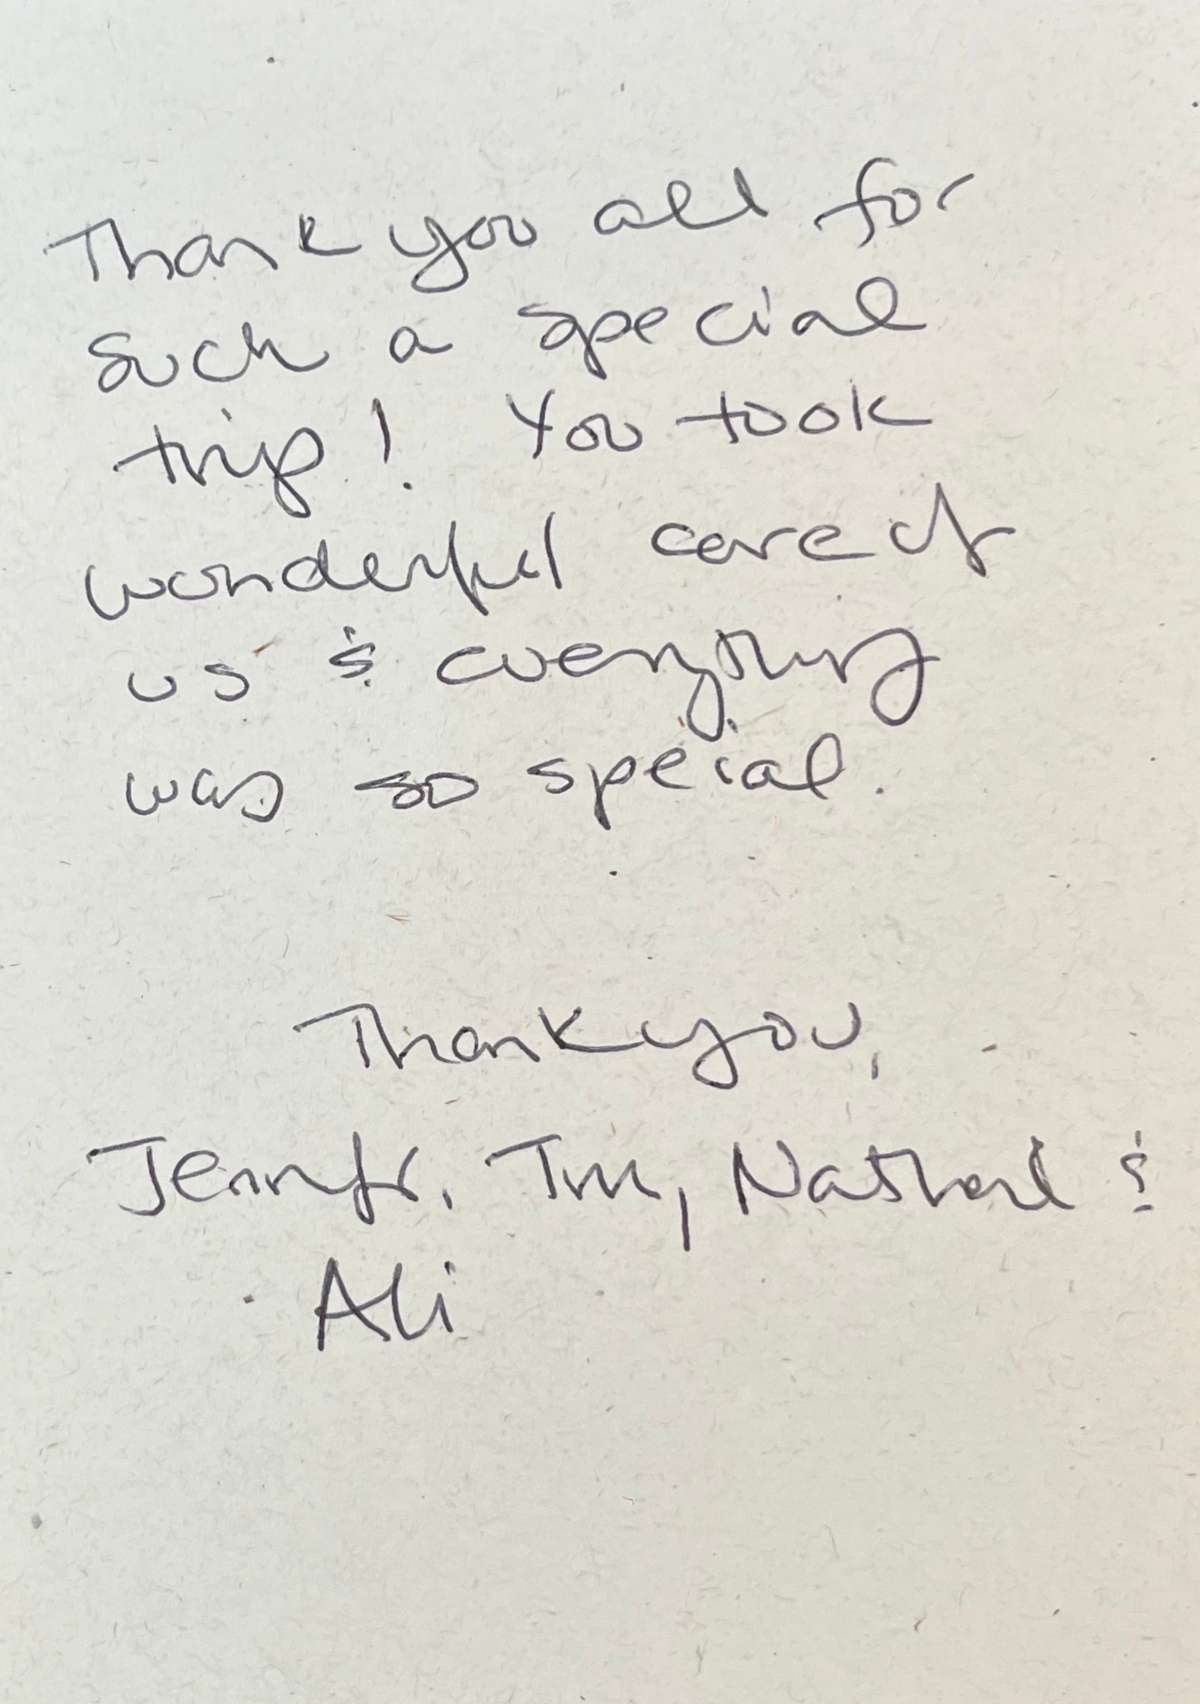 Thank you all for
such a special
trip! You took
wonderful care of
us & everything
was so special.
Thank you,
Jennifer, Tim, Nathaniel &
Ali